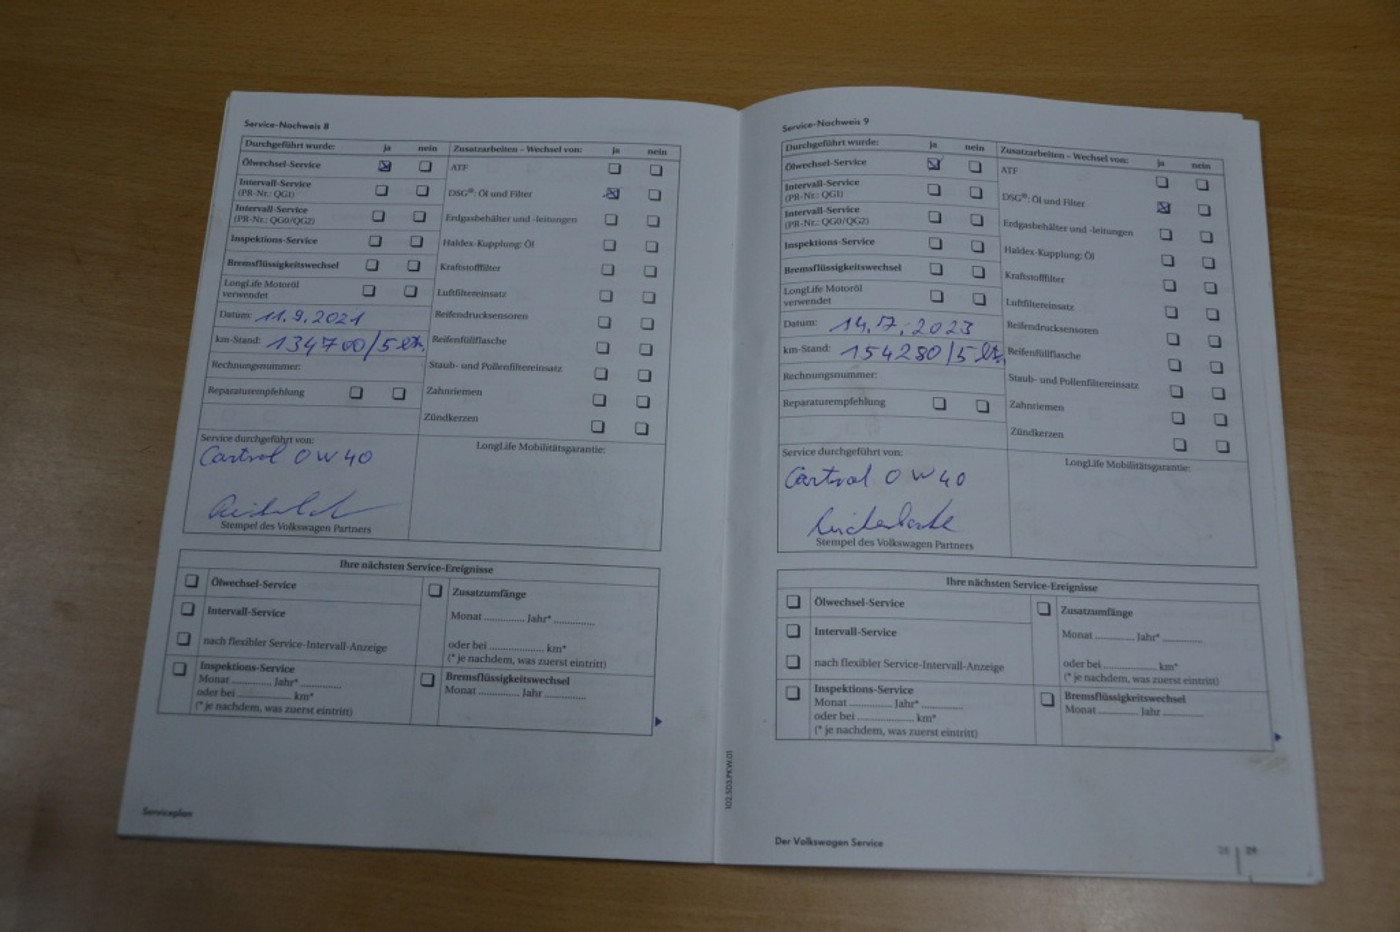 Service-Nachweis 8
Durchgeführt wurde: ja nein Zusatzarbeiten – Wechsel von: ja nein
Ölwechsel-Service
ATF
Intervall-Service
(PR-Nr.: QG1)
DSG®: Öl und Filter
Intervall-Service
(PR-Nr.: QG0/QG2)
Erdgasbehälter und -leitungen
Inspektions-Service
Haldex-Kupplung: Öl
Bremsflüssigkeitswechsel
Kraftstofffilter
LongLife Motoröl
verwendet
Luftfiltereinsatz
Datum: 11.9.2021
Reifendrucksensoren
km-Stand: 134700/5 ltr.
Reifenfüllflasche
Rechnungsnummer:
Staub- und Pollenfiltereinsatz
Reparaturempfehlung
Zahnriemen
Zündkerzen
Service durchgeführt von:
LongLife Mobilitätsgarantie:
Castrol 0W40
Stempel des Volkswagen Partners
Ihre nächsten Service-Ereignisse
Ölwechsel-Service
Zusatzumfänge
Intervall-Service
Monat .............. Jahr* ..............
nach flexibler Service-Intervall-Anzeige
oder bei .................... km*
(* je nachdem, was zuerst eintritt)
Inspektions-Service
Monat .............. Jahr* ..............
oder bei .................... km*
(* je nachdem, was zuerst eintritt)
Bremsflüssigkeitswechsel
Monat .............. Jahr ..............
Serviceplan
102.5D3.PKW.01
Service-Nachweis 9
Durchgeführt wurde: ja nein Zusatzarbeiten – Wechsel von: ja nein
Ölwechsel-Service
ATF
Intervall-Service
(PR-Nr.: QG1)
DSG®: Öl und Filter
Intervall-Service
(PR-Nr.: QG0/QG2)
Erdgasbehälter und -leitungen
Inspektions-Service
Haldex-Kupplung: Öl
Bremsflüssigkeitswechsel
Kraftstofffilter
LongLife Motoröl
verwendet
Luftfiltereinsatz
Datum: 14.7.2023
Reifendrucksensoren
km-Stand: 154280/5 ltr.
Reifenfüllflasche
Rechnungsnummer:
Staub- und Pollenfiltereinsatz
Reparaturempfehlung
Zahnriemen
Zündkerzen
Service durchgeführt von:
LongLife Mobilitätsgarantie:
Castrol 0W40
Stempel des Volkswagen Partners
Ihre nächsten Service-Ereignisse
Ölwechsel-Service
Zusatzumfänge
Intervall-Service
Monat .............. Jahr* ..............
nach flexibler Service-Intervall-Anzeige
oder bei .................... km*
(* je nachdem, was zuerst eintritt)
Inspektions-Service
Monat .............. Jahr* ..............
oder bei .................... km*
(* je nachdem, was zuerst eintritt)
Bremsflüssigkeitswechsel
Monat .............. Jahr ..............
Der Volkswagen Service
28 29